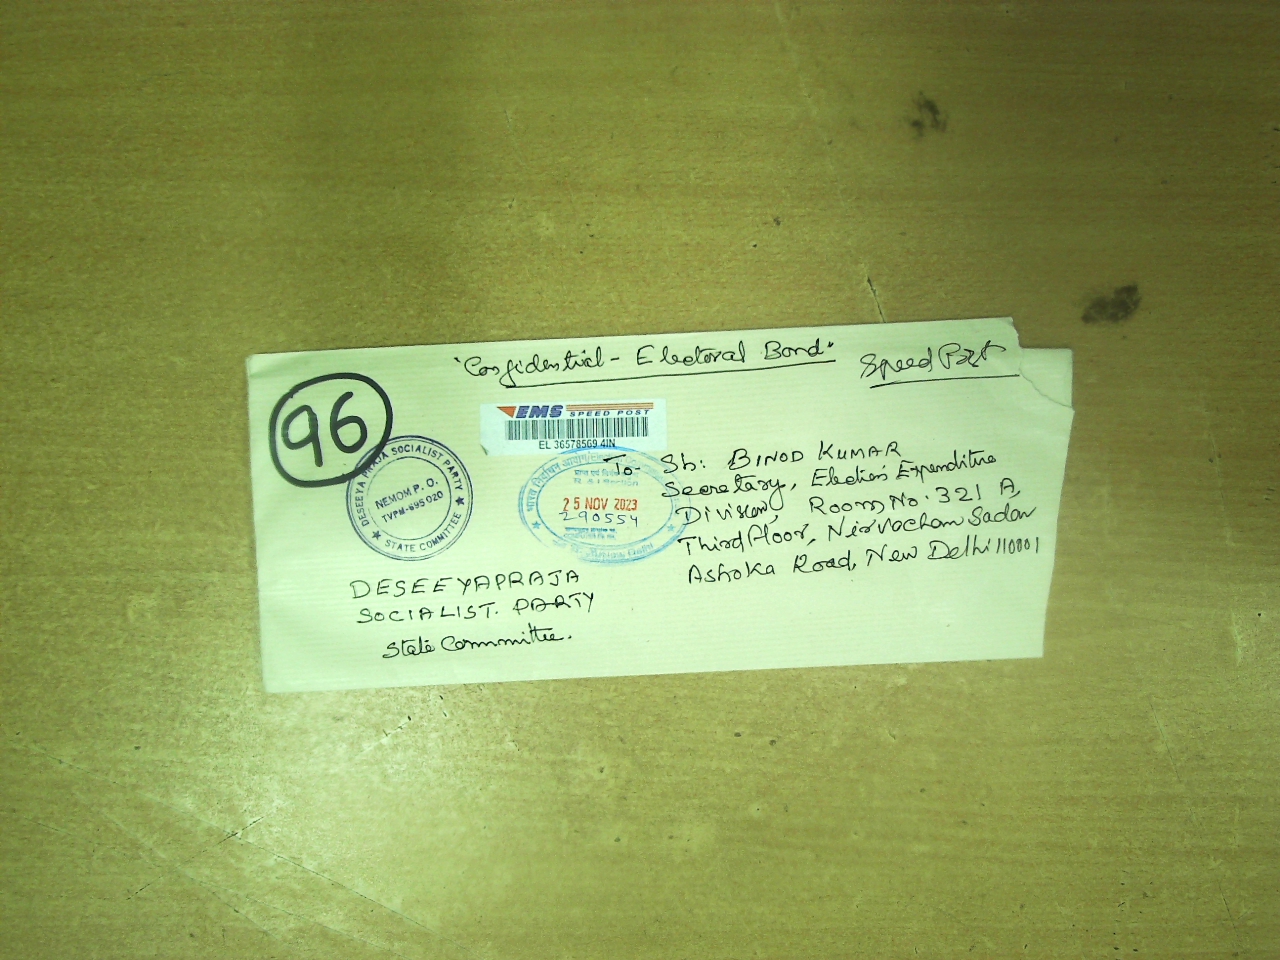 "Confidential - Electoral Bond"
Speed Post
96
EMS SPEED POST
EL 36578569 4IN
DESEEYA PRAJA SOCIALIST PARTY
NEMOM P. O.
TVPM-695020
★ STATE COMMITTEE ★
भारत निर्वाचन आयोग
25 NOV 2023
290554
New Delhi
To-
Sh: BINOD KUMAR
Secretary, Election Expenditure
Division, Room No. 321 A,
Third Floor, Nirvacham Sadan
Ashoka Road, New Delhi 110001
DESEEYAPRAJA
SOCIALIST. PARTY
State Committee.